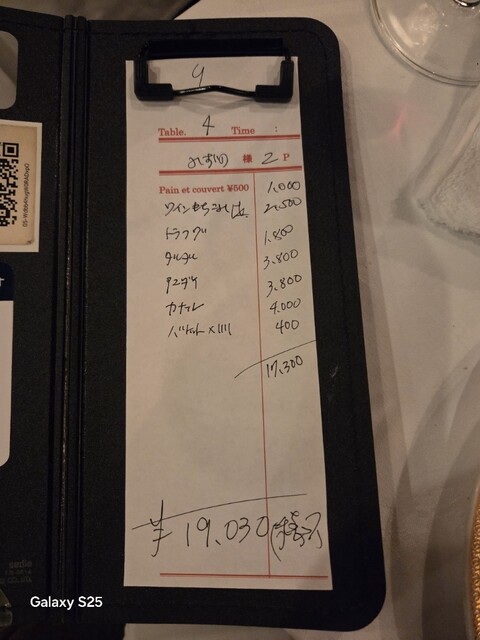 4
Table. 4 Time :
様 2 P
Pain et couvert ¥500 1,000
ワインもちこみ 2,500
トラフグ 1,800
タルタル 3,800
3,800
カナール 4,000
バケット × 400
17,300
¥19,030(税込)
Galaxy S25